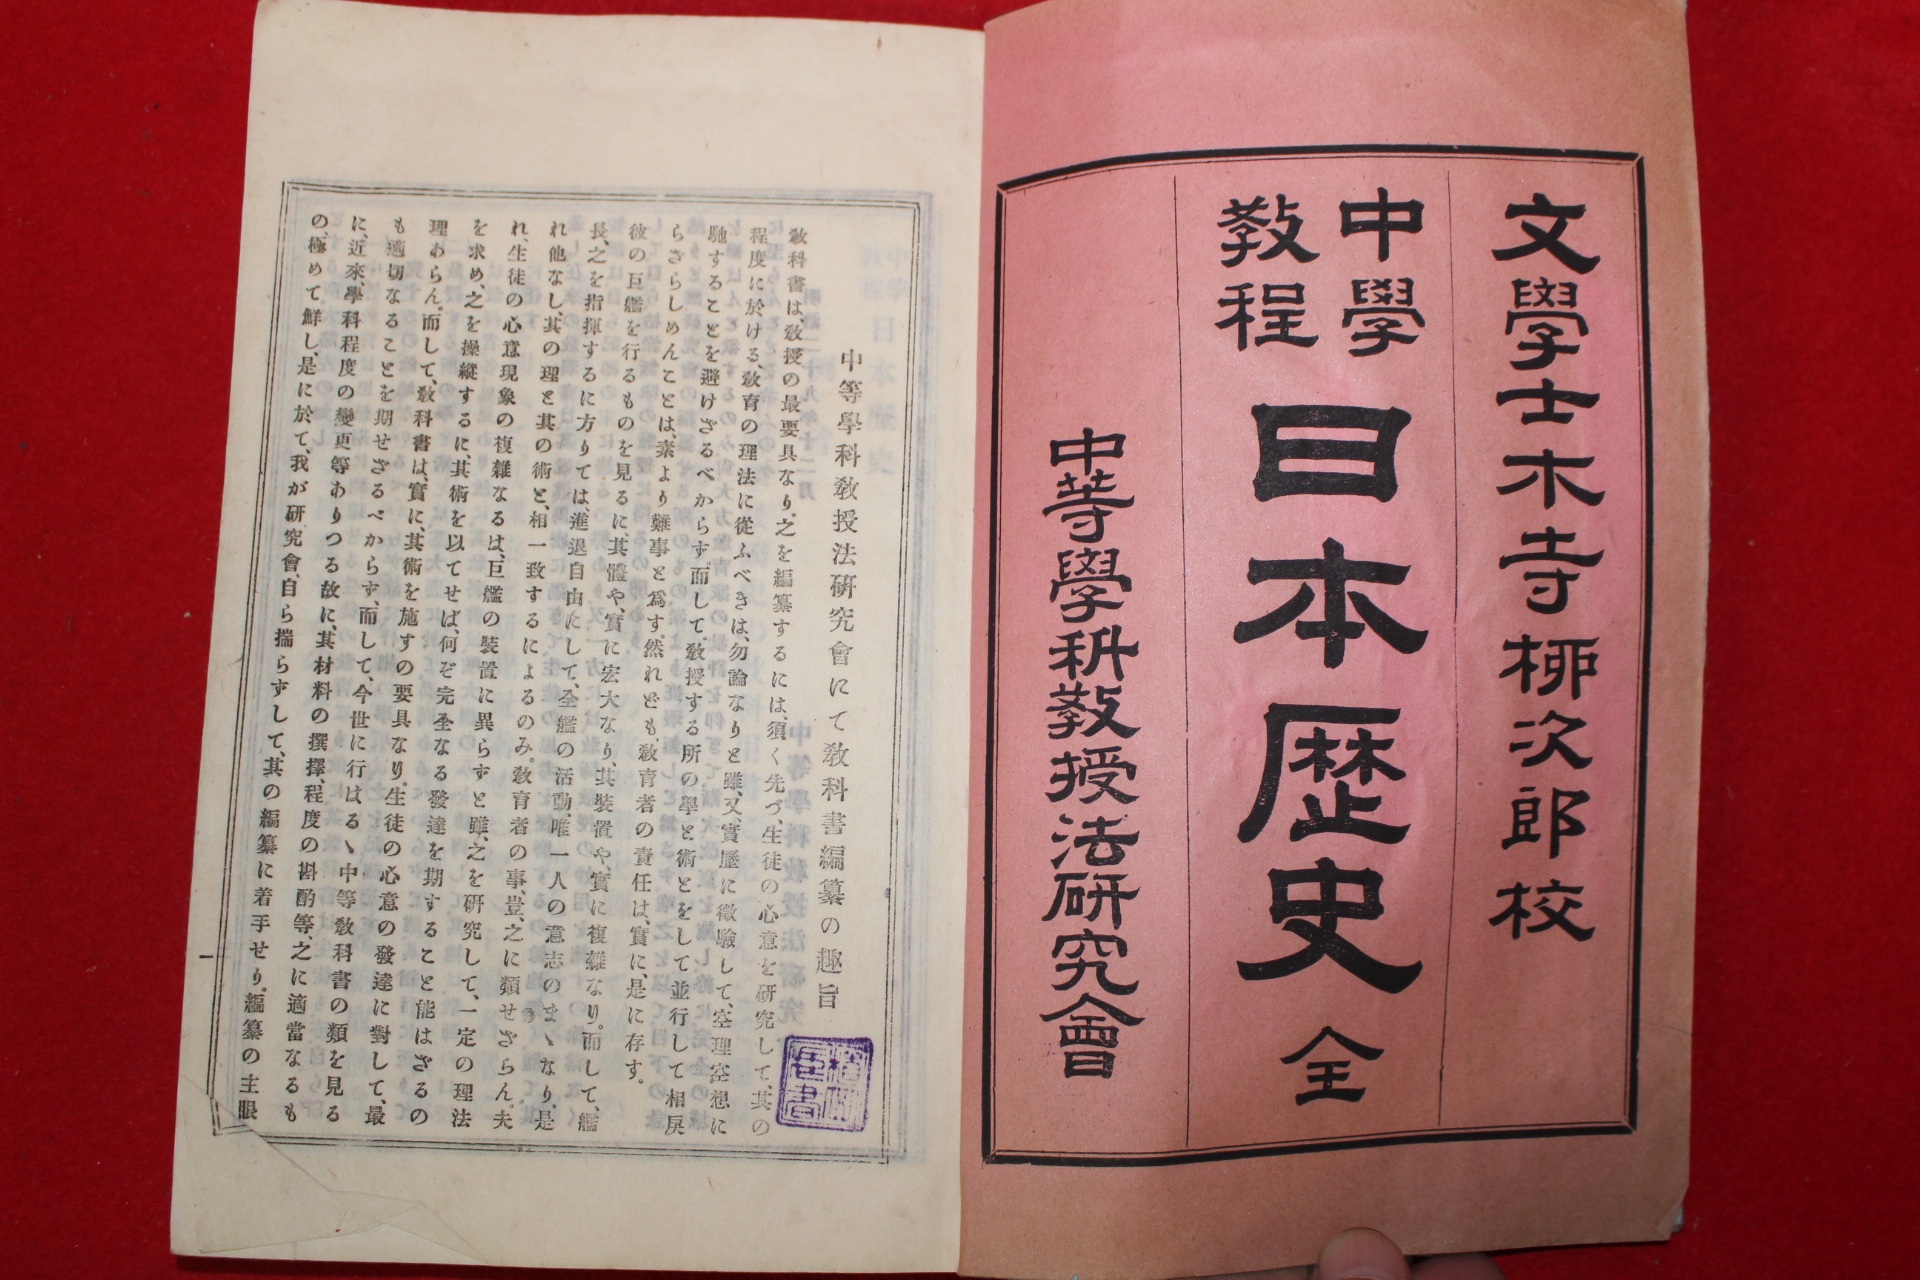 文學士木寺柳次郎校
中學
敎程
日本歷史 全
中等學科敎授法研究會
中等學科敎授法硏究會にて敎科書編纂の趣旨
敎科書は、敎授の最要具なり。之を編纂するには、須く先づ、生徒の心意を研究して、其の
程度に於ける、敎育の理法に從ふべきは、勿論なりと雖、又、實歷に徵驗して、空理空想に
馳することを避けざるべからず。而して、敎授する所の學と術とをして並行して相戾
らざらしめんことは、素より難事と爲す。然れども、敎育者の責任は、實に、是に存す。
彼の巨艦を行るものを見るに、其體や、實に宏大なり、其裝置や、實に複雜なり。而して、艦
長、之を指揮するに方りては、進退自由にして、全艦の活動、唯一人の意志のまゝなり、是
れ他なし、其の理と其の術と、相一致するによるのみ。敎育者の事、豈、之に類せざらん。夫
れ、生徒の心意現象の複雜なるは、巨艦の裝置に異らずと雖、之を研究して、一定の理法
を求め、之を操縱するに、其術を以てせば、何ぞ完全なる發達を期すること能はざるの
理あらん。而して、敎科書は、實に、其術を施すの要具なり。生徒の心意の發達に對して、最
も適切なることを期せざるべからず、而して、今世に行はるゝ中等敎科書の類を見る
に、近來、學科程度の變更等ありつる故に、其材料の撰擇、程度の斟酌等、之に適當なるも
の、極めて鮮し、是に於て、我が研究會、自ら揣らずして、其の編纂に着手せり。編纂の主眼
一